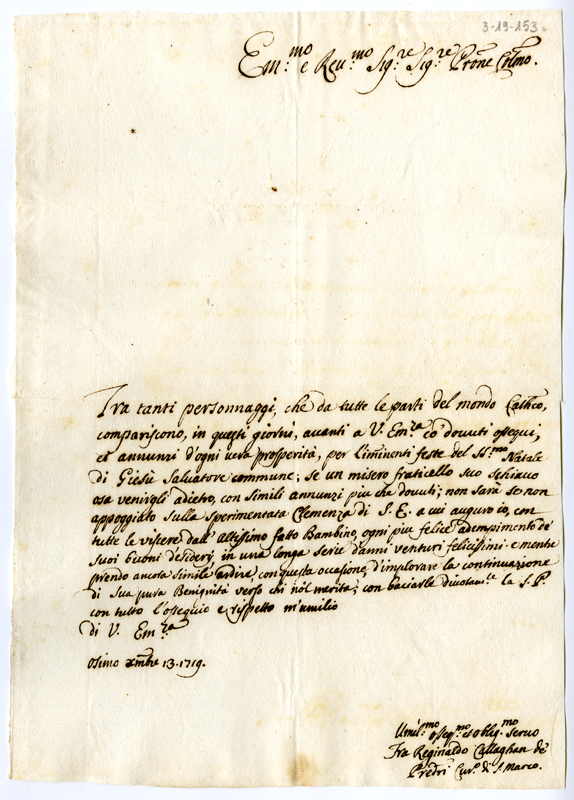 3-19-153.
Em:mo e Reu:mo Sig:re Sig:re Prone Colmo.
Tra tanti personnaggi, che da tutte le parti del mondo Cathco,
compariscono, in questi giorni, auanti a V. Em:za co' douuti ossequi,
et annunzi d'ogni uera prosperità, per l'iminenti feste del SS:mo Natale
di Giesù Saluatore commune; se un misero fraticello suo schiauo
osa venirgli adietro, con simili annunzi piu che douuti; non sarà se non
appoggiato sulla sperimentata Clemenza di S. E. a cui auguro io, con
tutte le viscere dall' altissimo fatto Bambino, ogni piu felice adempimento de'
suoi buoni desiderj, in una longa serie d'anni venturi felicissimi. e mentre
prendo ancora simile ardire con questa occasione, d'implorare la continuazione
di sua pura Benignità verso chi nol merita; con baciarle diuotamte la S. P.
con tutto l'ossequio e rispetto m'umilio
di V. Em:za
Osimo xmbre 13. 1719.
Umil:mo osseq:mo et oblig:mo seruo
Fra Reginaldo Callaghan de'
Predri Cur:o di S. Marco.